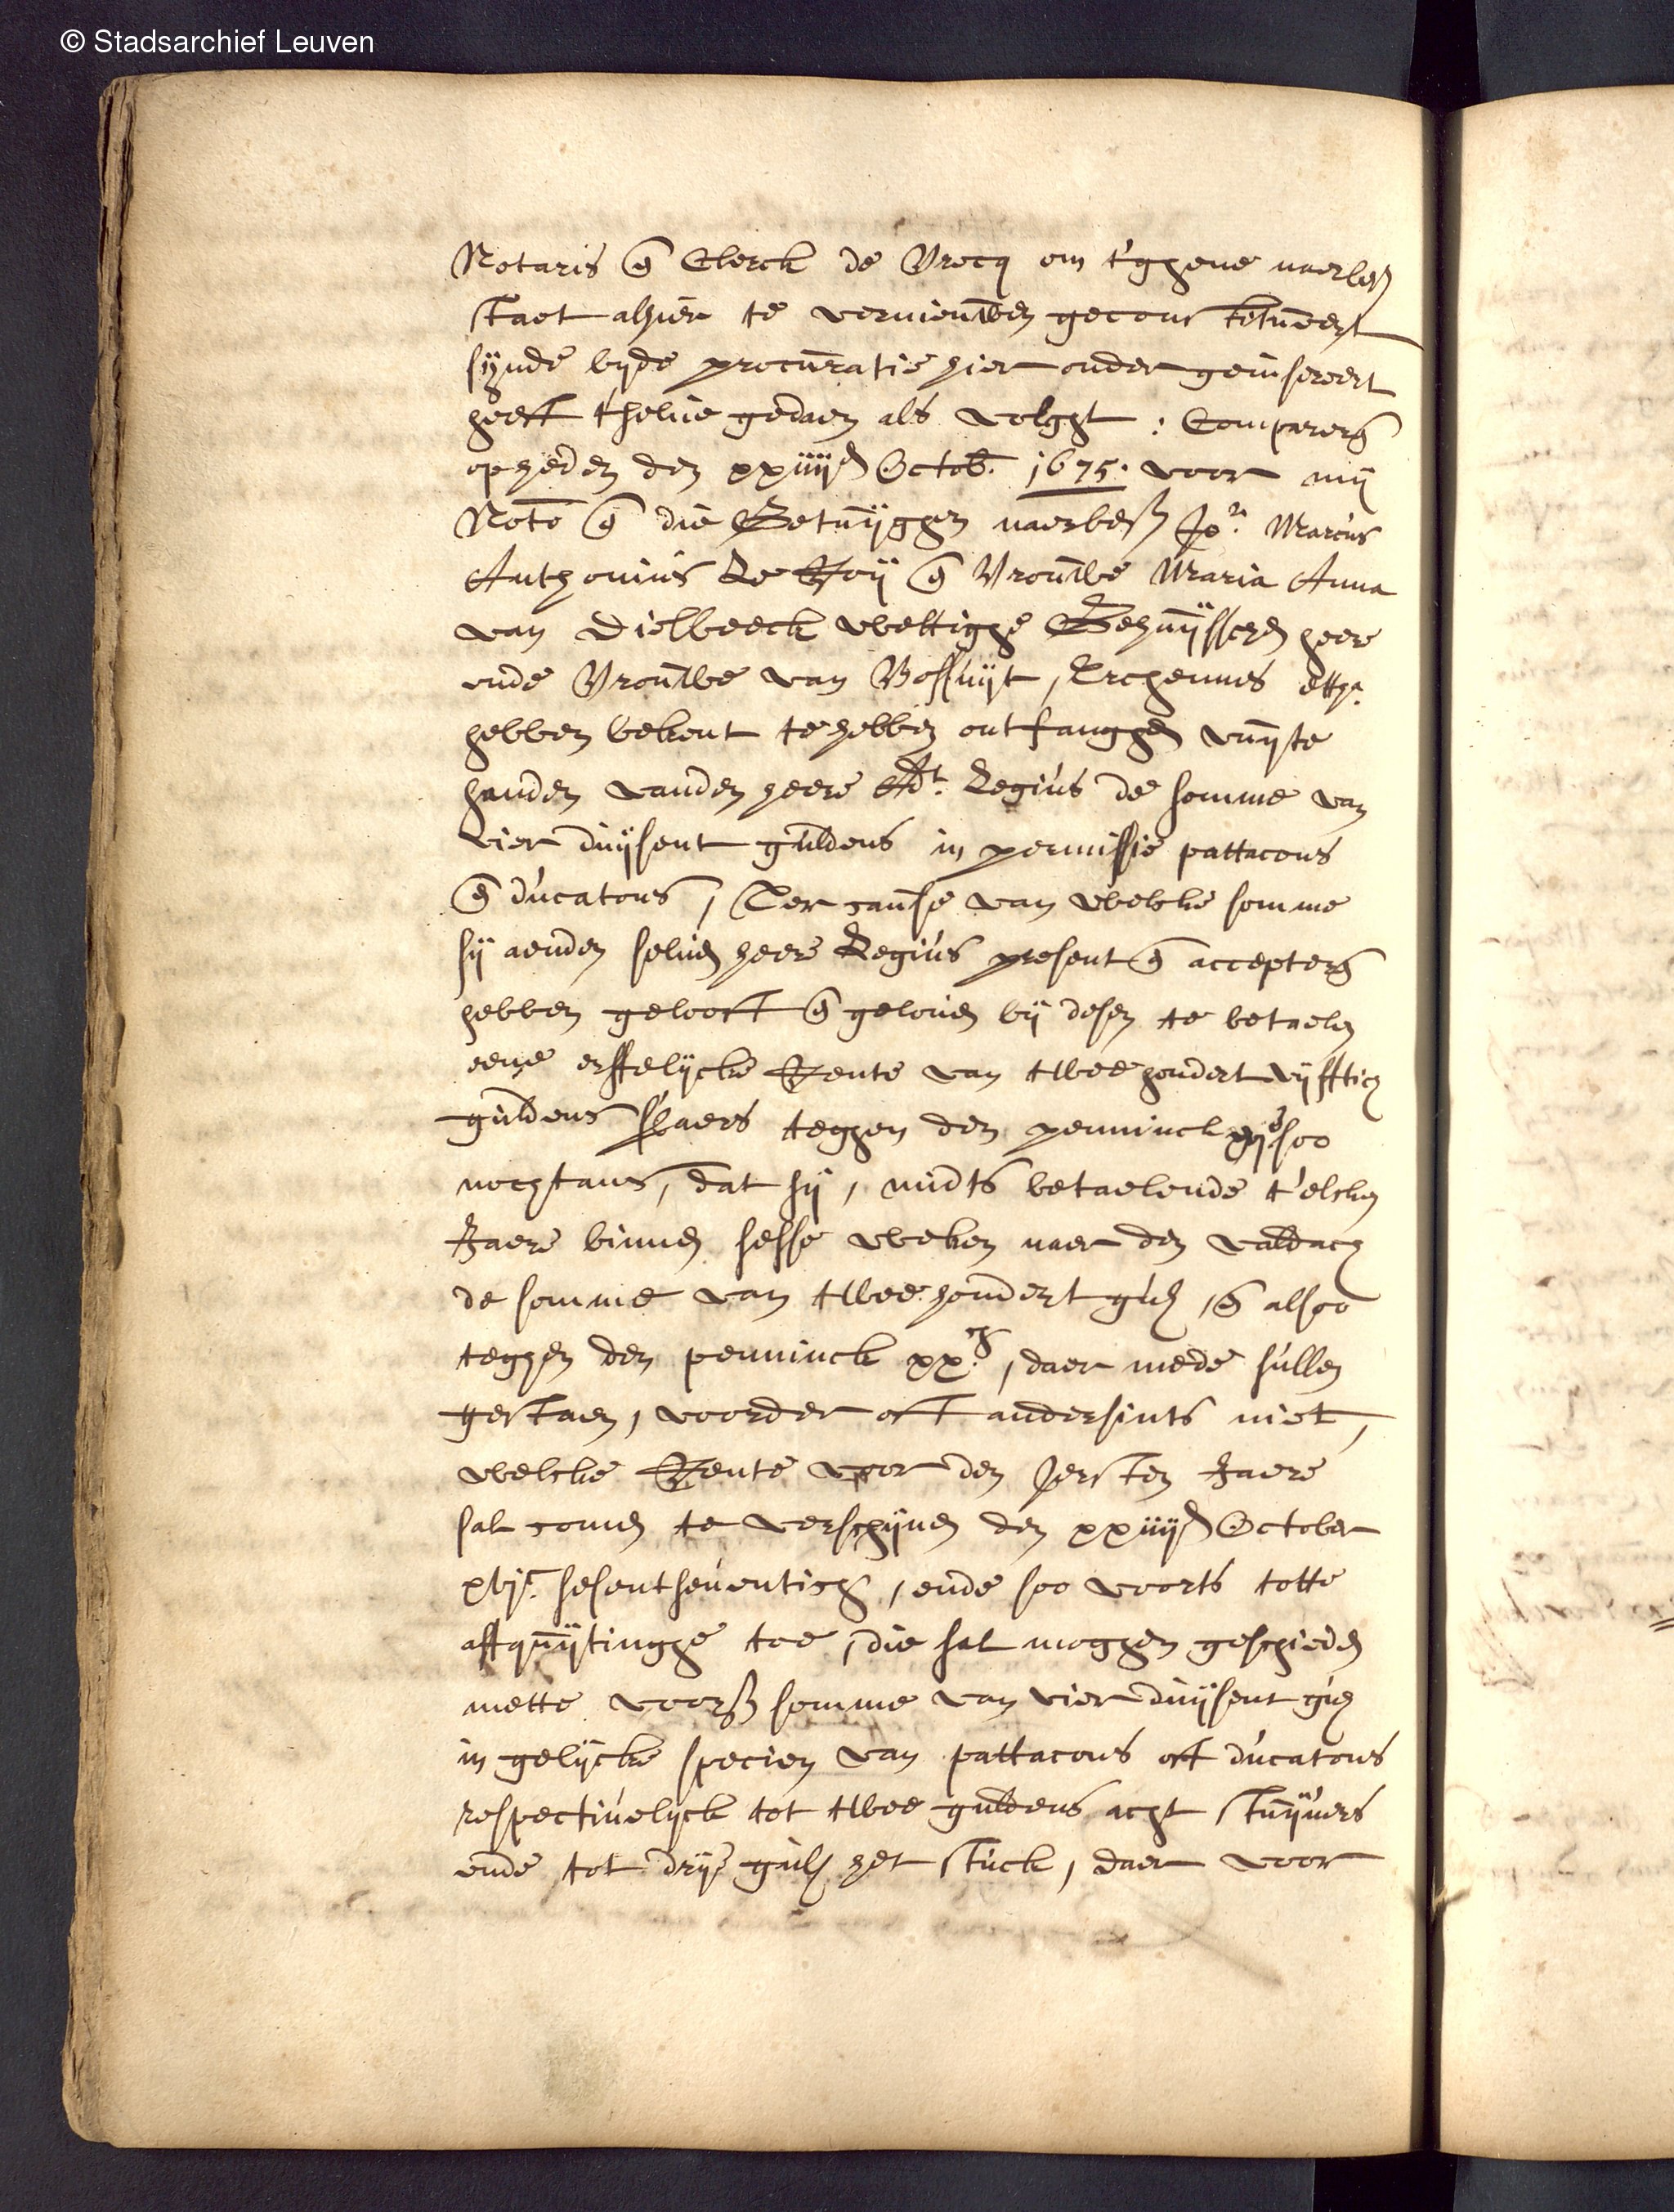 © Stadsarchief Leuven
Notaris en Clerck de Vrocq om t'ghene naerbes
staet alhier te vernieuwen geconstitueert
sijnde byde procuratie hier onder geinsereert
heeft t'selve gedaen als volght : Comparerende
op heden den xxiiije Octob. 1675. voor mij
Noto en die Getuijgen naerbes Jor. Marcus
Anthonius Le Roij en Vrouwe Maria Anna
van Dielbeeck wettighe Gehuijsschen heere
ende Vrouwe van Bossuijt, Archennes etc.
hebben bekent te hebben ontfanghen uuijte
handen vanden heere Adt. Regius de somme van
vier duijsent guldens in permissie pattacons
en ducatons, Ter cause van welcke somme
sij aenden selven heere Regius present en accepterende
hebben geloeft en geloven bij desen te betaelen
eene erffelijcke Rente van twee hondert vijfftich
guldens sjaers teghen den penninck soo
nochtans, dat sij, midts betaelende t'elcken
Jaere binnen sesse weken naer den valdach
de somme van twee hondert guls, en alsoo
teghen den penninck xx.ch, daer mede sullen
gestaen, voorder oft andersints niet,
welcke Rente voor den Jersten Jaere
sal comen te verschijnen den xxiiije October
xvjc. sesentseventich, ende soo voorts totte
affquijtinghe toe, die sal moghen geschieden
mette voors somme van vier duijsent guls
in gelijcke specien van pattacons oft ducatons
respectivelijck tot twee guldens acht stuijvers
ende tot drije guls het stuck, daer voor